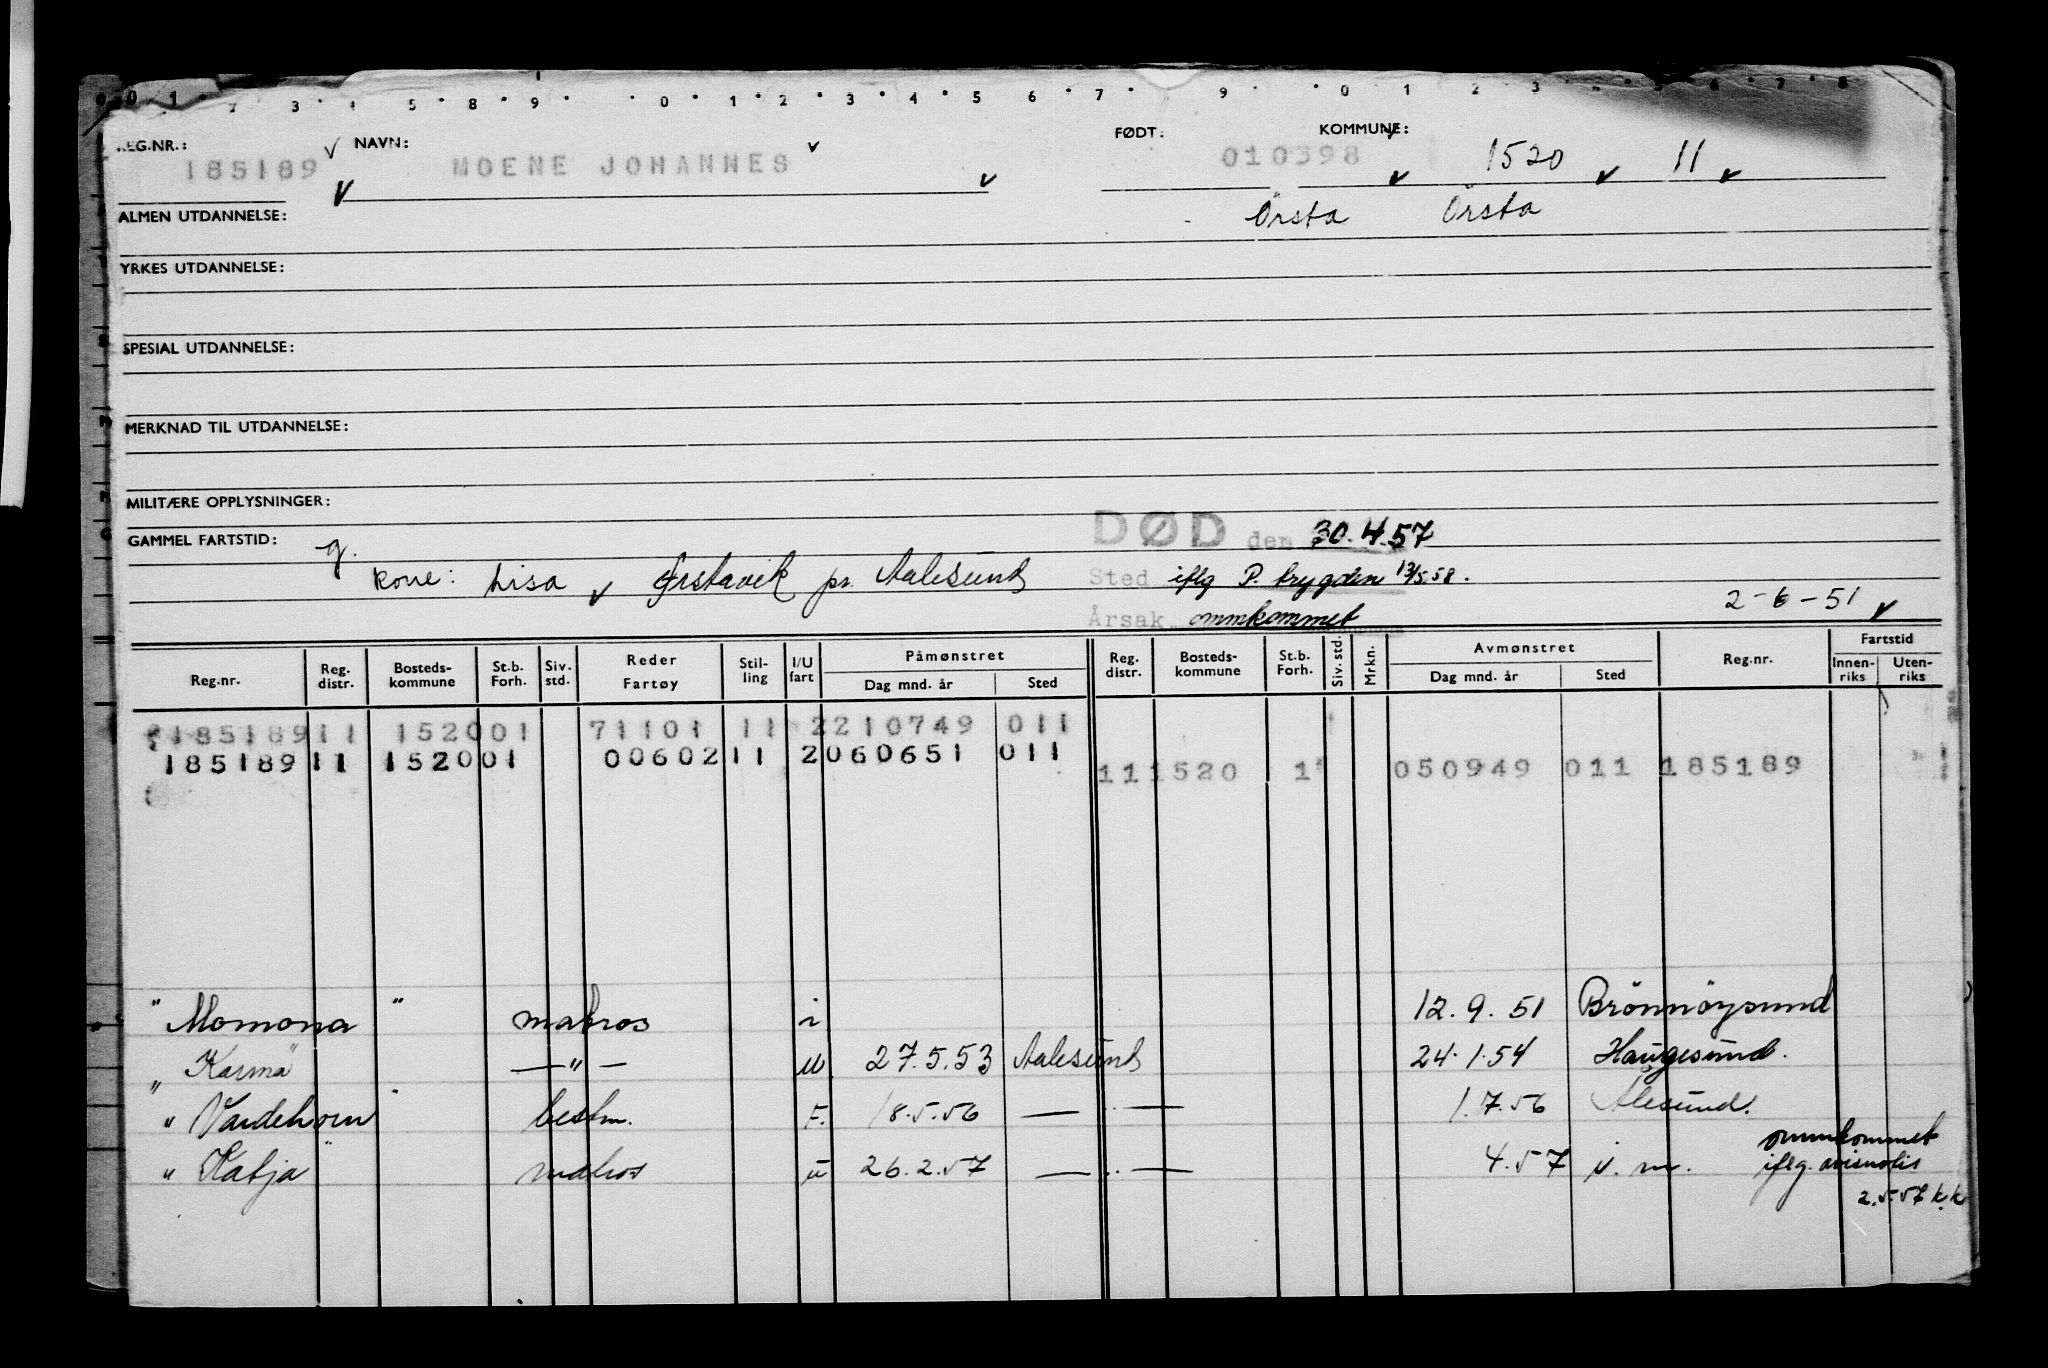 0 1 2 3 4 5 8 9 0 1 2 3 4 5 6 7 9 0 1 2 3 4 5 6 7 8
REG.NR.: NAVN: FØDT: KOMMUNE:
185189 MOENE JOHANNES 010398 1520 11
ALMEN UTDANNELSE: Örsta Örsta
YRKES UTDANNELSE:
SPESIAL UTDANNELSE:
MERKNAD TIL UTDANNELSE:
MILITÆRE OPPLYSNINGER:
GAMMEL FARTSTID: g. DØD den 30.4.57
kone: Lisa Ørstavik pr. Aalesund Sted iflg P. trygden 13/5.58.
2-6-51
Årsak ommkommet
Reg.nr. Reg. distr. Bosteds-kommune St.b. Forh. Siv. std. Reder Fartøy Stil-ling I/U fart Påmønstret Dag mnd. år Sted Reg. distr. Bosteds-kommune St.b. Forh. Siv. std. Mrkn. Avmønstret Dag mnd. år Sted Reg.nr. Fartstid Innen-riks Uten-riks
185189 11 152001 71101 11 2210749 011
185189 11 152001 00602 11 2060651 011
11 1520 1 050949 011 185189
"Momona" matros i 12.9.51 Brönnöysund
"Karma" —"— u 27.5.53 Aalesund 24.1.54 Haugesund.
"Vardehorn" bestm. F. 18.5.56 —"— 1.7.56 Ålesund.
"Katja" matros u 26.2.57 —"— 4.57 ommkommet
iflg. avisnotis
2.5.57 k.k